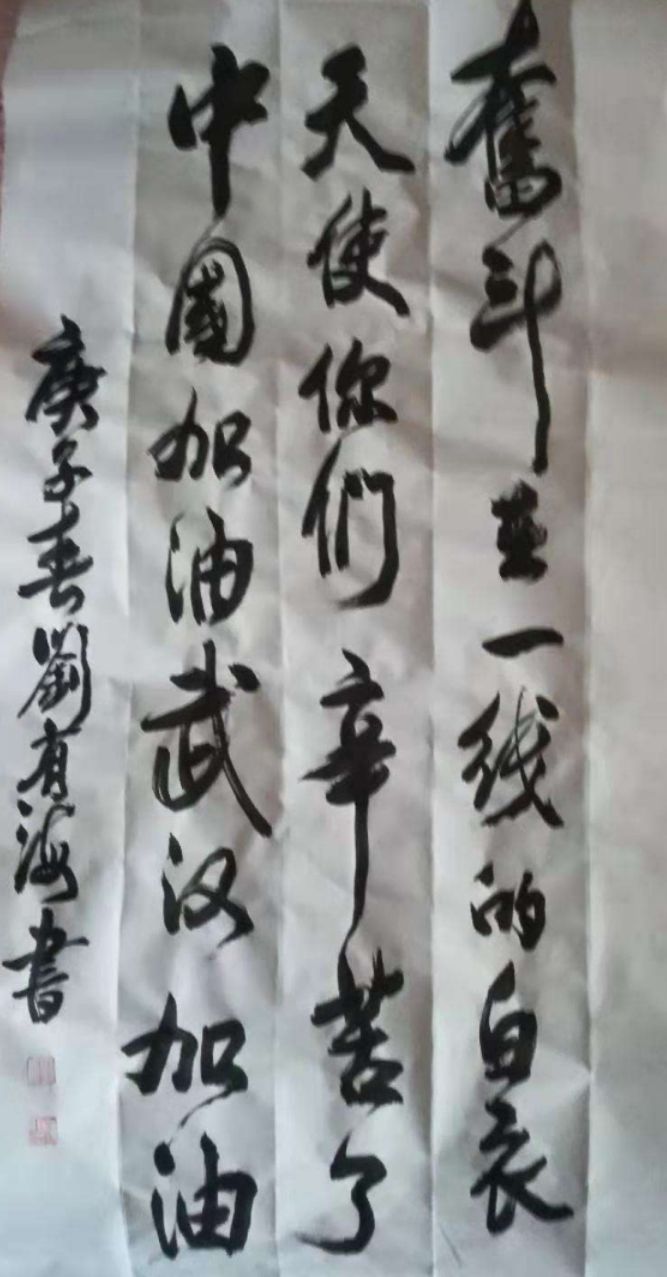 奮斗在一线的白衣
天使你们辛苦了
中國加油武汉加油
庚子春劉有海書